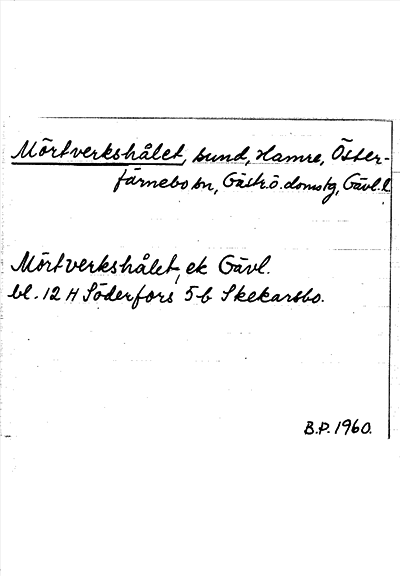 Mörtverkshålet, sund, Hamre, Öster-
färnebo sn, Gästr. ö. domsg, Gävl. l
Mörtverkshålet, ek Gävl.
bl. 12 H Söderfors 5-b Skekarsbo.
B.P. 1960.